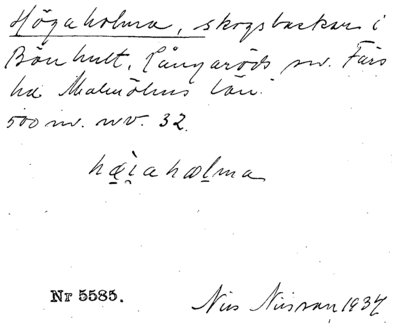 Högaholma, skogsbackar i
Bönhult, Långaröds sn. Färs
hd Malmöhus län.
500 m. nv. 32.
hæi̯ahælma
Nr 5585.
Nils Nilsson 1934